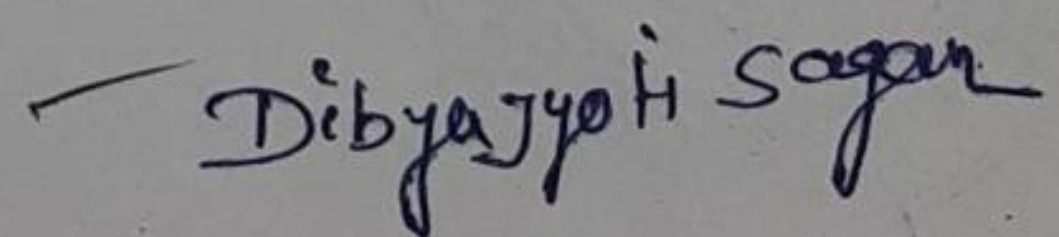 — Dibyajyoti Sagar